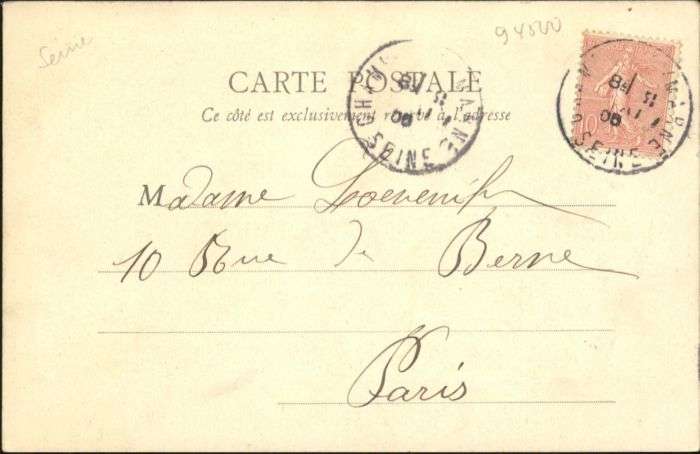 Seine
94500
CARTE POSTALE
Ce côté est exclusivement réservé à l'adresse
Madame
10 Rue de Berne
Paris
SEINE
SEINE